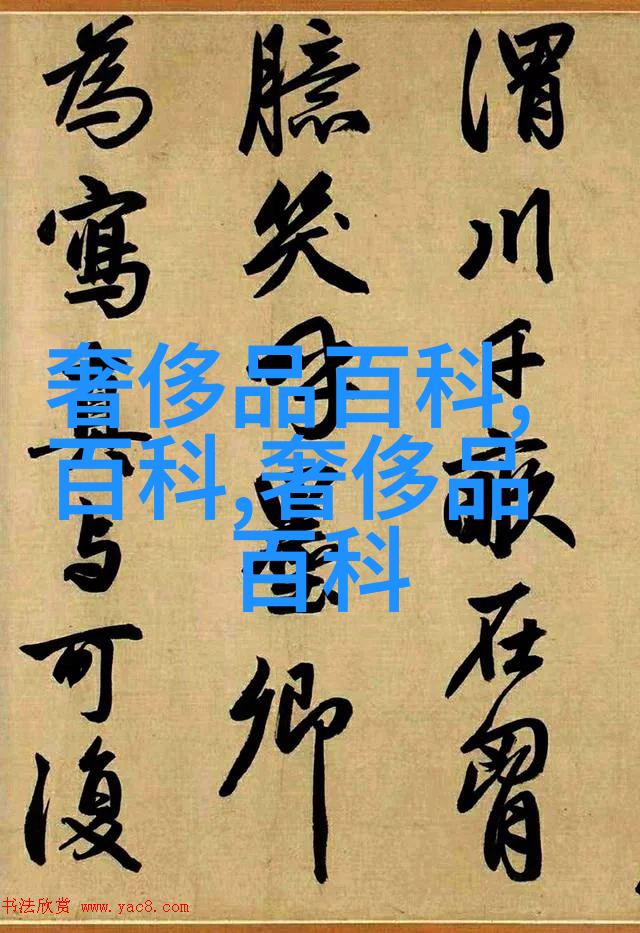 渭川千畝在胷
臆笑呼墨卿
為寫真与可復
奢侈品百科,
百科,奢侈品
百科
书法欣赏 www.yac8.com